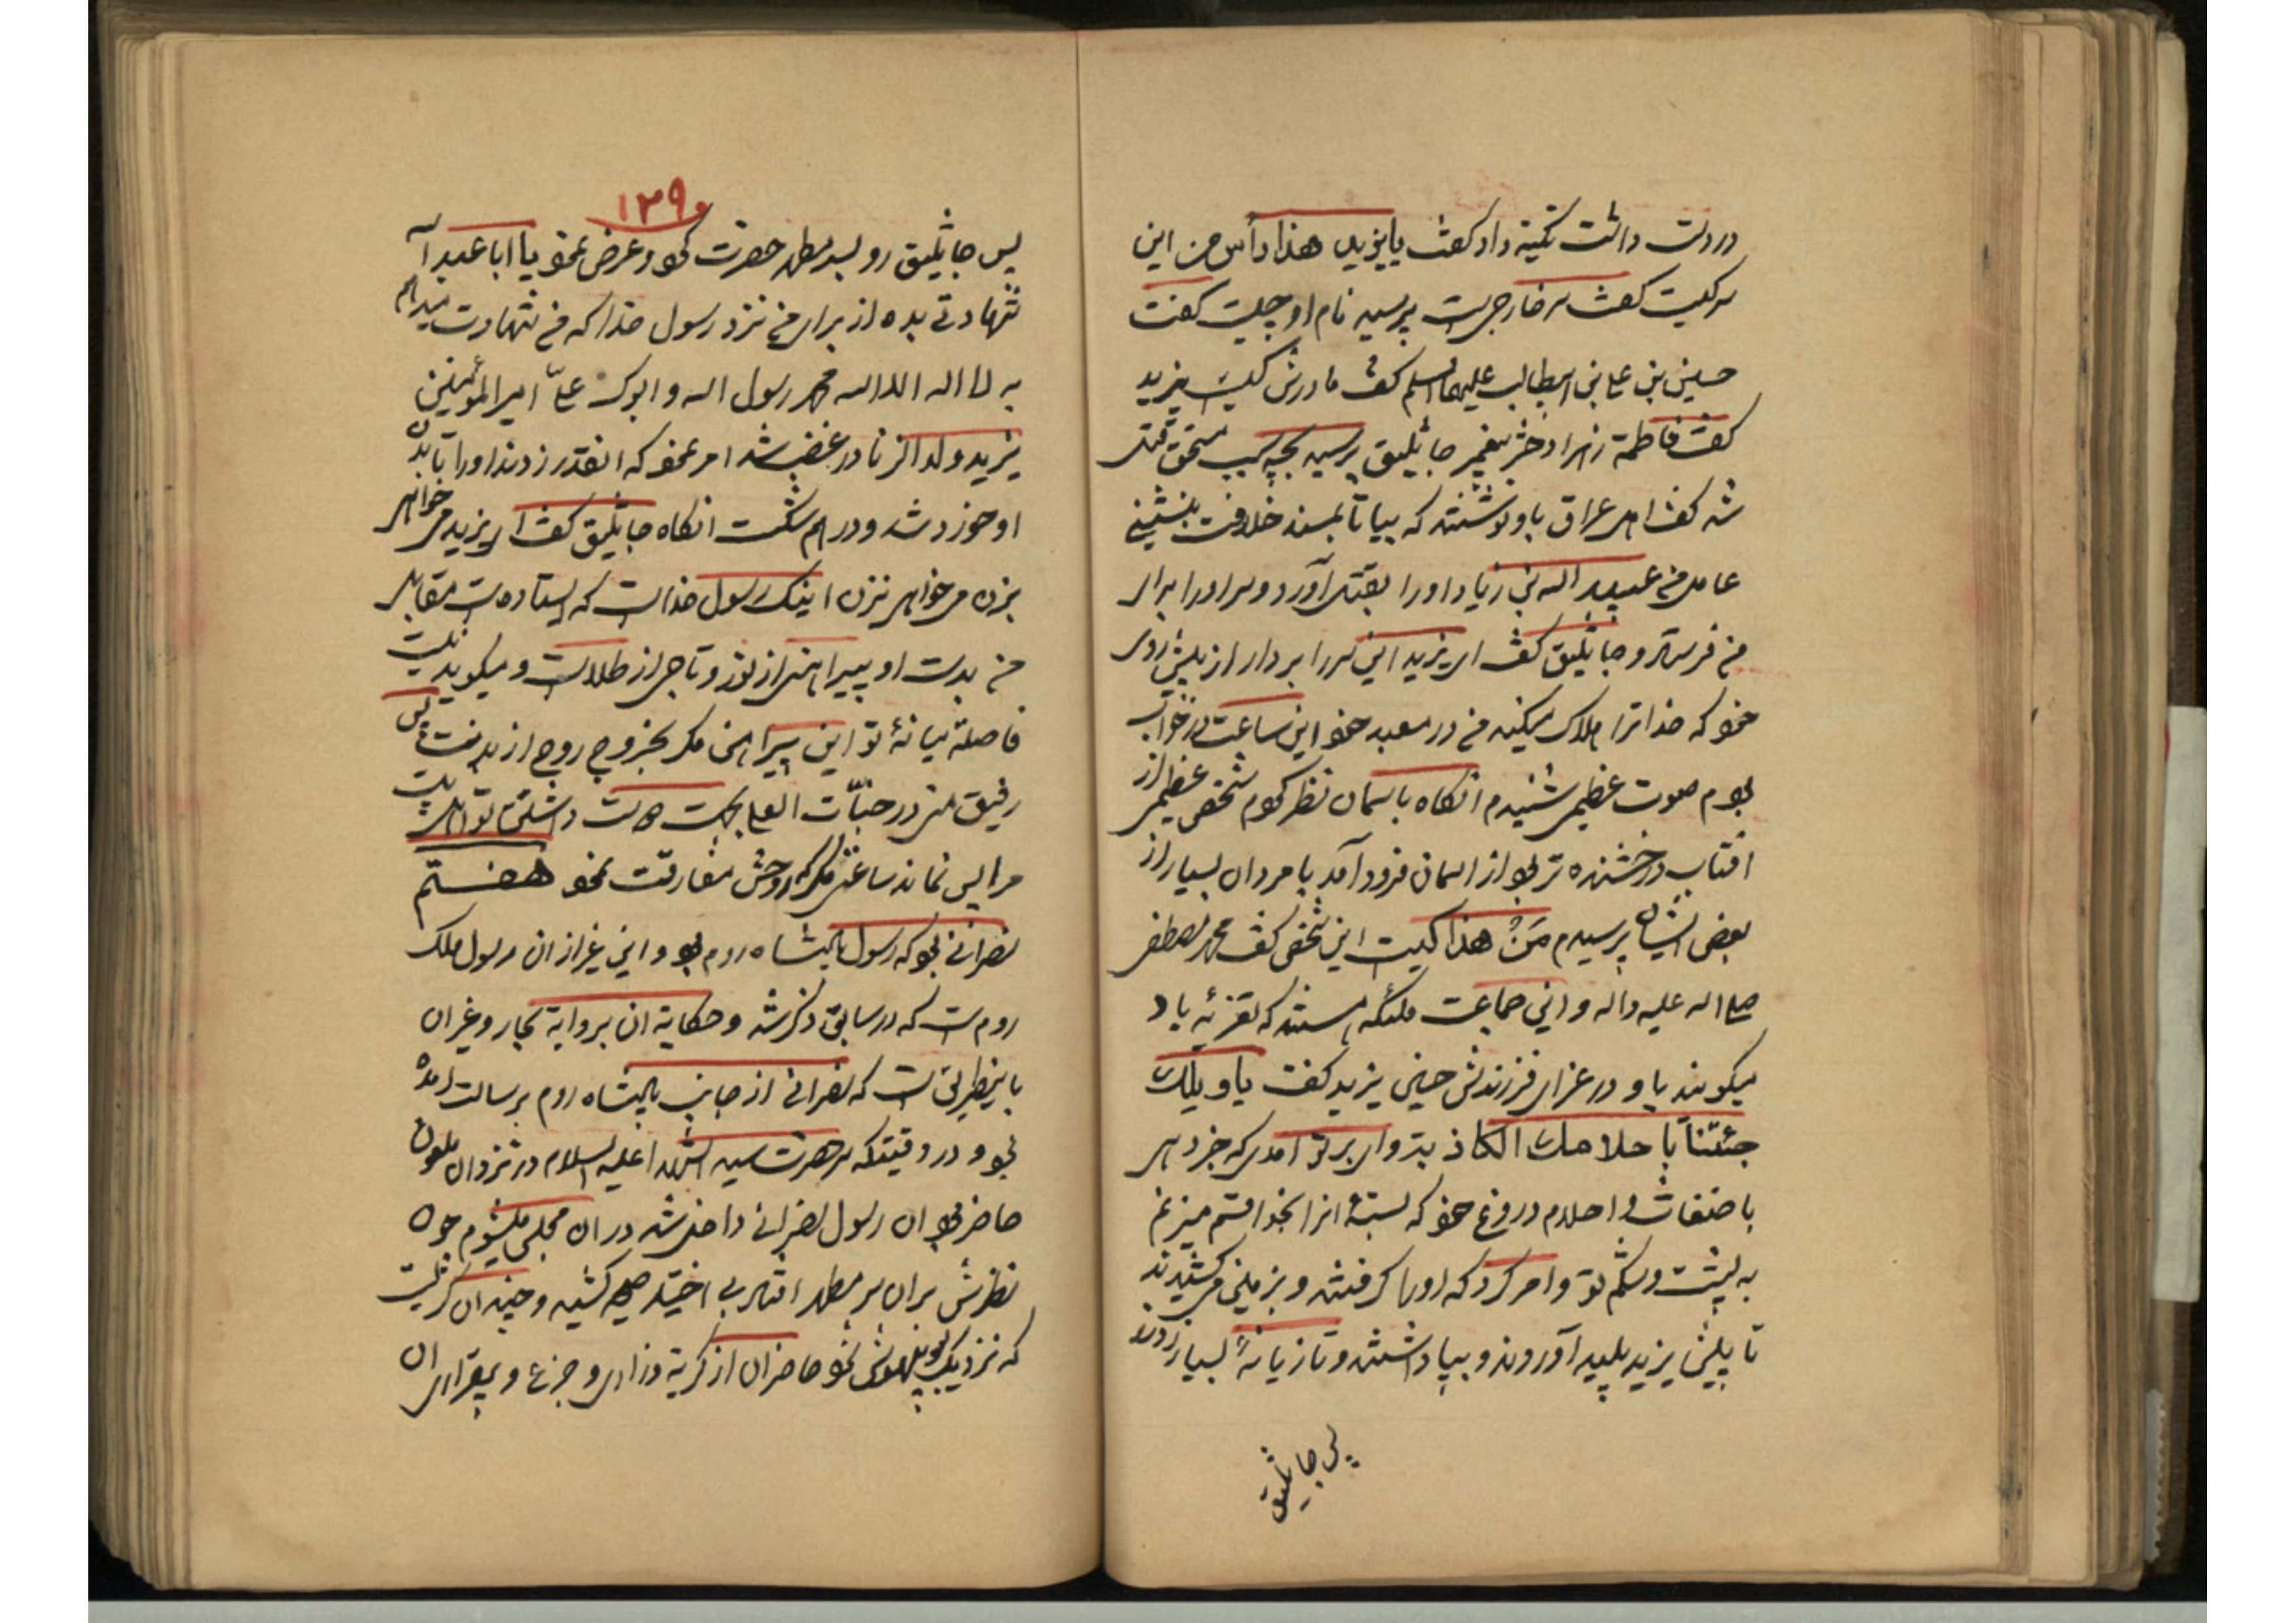 در دست داشت تکیه داد گفت یا یزید هذا رأس من این
سر کیست گفت سر خارجی است پرسید نام او چیست گفت
حسین بن علی بن ابیطالب علیهما السلم گفت مادرش کیست یزید
گفت فاطمة زهرا دختر پیغمبر جاثلیق پرسید بچه سبب مستحق قتل
شد گفت اهل عراق باو نوشتند که بیا تا بمسند خلافت بنشینی
عامل من عبید الله بن زیاد او را بقتل آورد و سر او را برای
من فرستاد و جاثلیق گفت ای یزید این سر را بردار از پیش روی
خود که خدا ترا هلاک میکند من در معبد خود این ساعت در خواب
بودم صوت عظیمی شنیدم انکاه باسمان نظر کردم شخص عظیمی از
افتاب درخشنده تر بود از اسمان فرود آمد با مردان بسیار از
بعض ایشان پرسیدم مَنْ هذا کیست این شخص گفت محمد مصطفی
صلی الله علیه واله و این جماعت ملئکه هستند که تعزیه یاد
میکویند باو در عزای فرزندش حسین یزید کفت یا ویلک
جئتنا با حلامک الکاذبة وای بر تو امدی که خبر دهی
باضغاث و احلام دروغ خود که بسته انرا بخدا قسم میزنم
به پشت و شکم تو و امر کرد که او را کرفتند و بزمین می کشیدند
تا پیش یزید پلید آوردند و بپا داشتند و تازیانهٔ بسیار زدند
پس جاثلیق
۱۳۹
پس جاثلیق رو بسر مطهر حضرت کرد و عرض نمود یا ابا عبد الله
شهادتی بده از برای من نزد رسول خدا که من شهادت میدهم
به لا اله الا الله محمد رسول الله و ابوک علیّ امیر المؤمنین
یزید ولد الزنا در غضب شد امر نمود که انقدر زدند او را تا بدن
او خورد شد و در هم شکست انکاه جاثلیق گفت ای یزید می خواهی
بزن می خواهی نزن اینک رسول خداست که ایستاده است مقابل
من بدست او پیراهنی از نور و تاجی از طلاست و میکوید نیست
فاصله میانهٔ تو این پیراهن مکر بخروج روح از بدنت پس
رفیق من در جنّات العلی بجهت دوست داشتن تو اهل بیت
مرا پس نماند ساعتی مکر که روحش مفارقت نمود هفتم
نصرانی بود که رسول پادشاه روم بود و این غیر از ان رسول ملک
روم است که در سابق ذکر شد و حکایة ان بروایة بحار و غیر ان
باینطریق است که نصرانی از جانب پادشاه روم برسالت امده
بود و در وقتیکه سر حضرت سید الشهدا علیه السلام در نزد ان ملعون
حاضر بود ان رسول نصرانی داخل شد در ان مجلس میشوم چون
نظرش بران سر مطهر افتاد بی اختیار صیحه کشید و چندان کریست
که نزدیک بود بیهوش شود حاضران از کریه و زاری و جزع و بیقراری ان